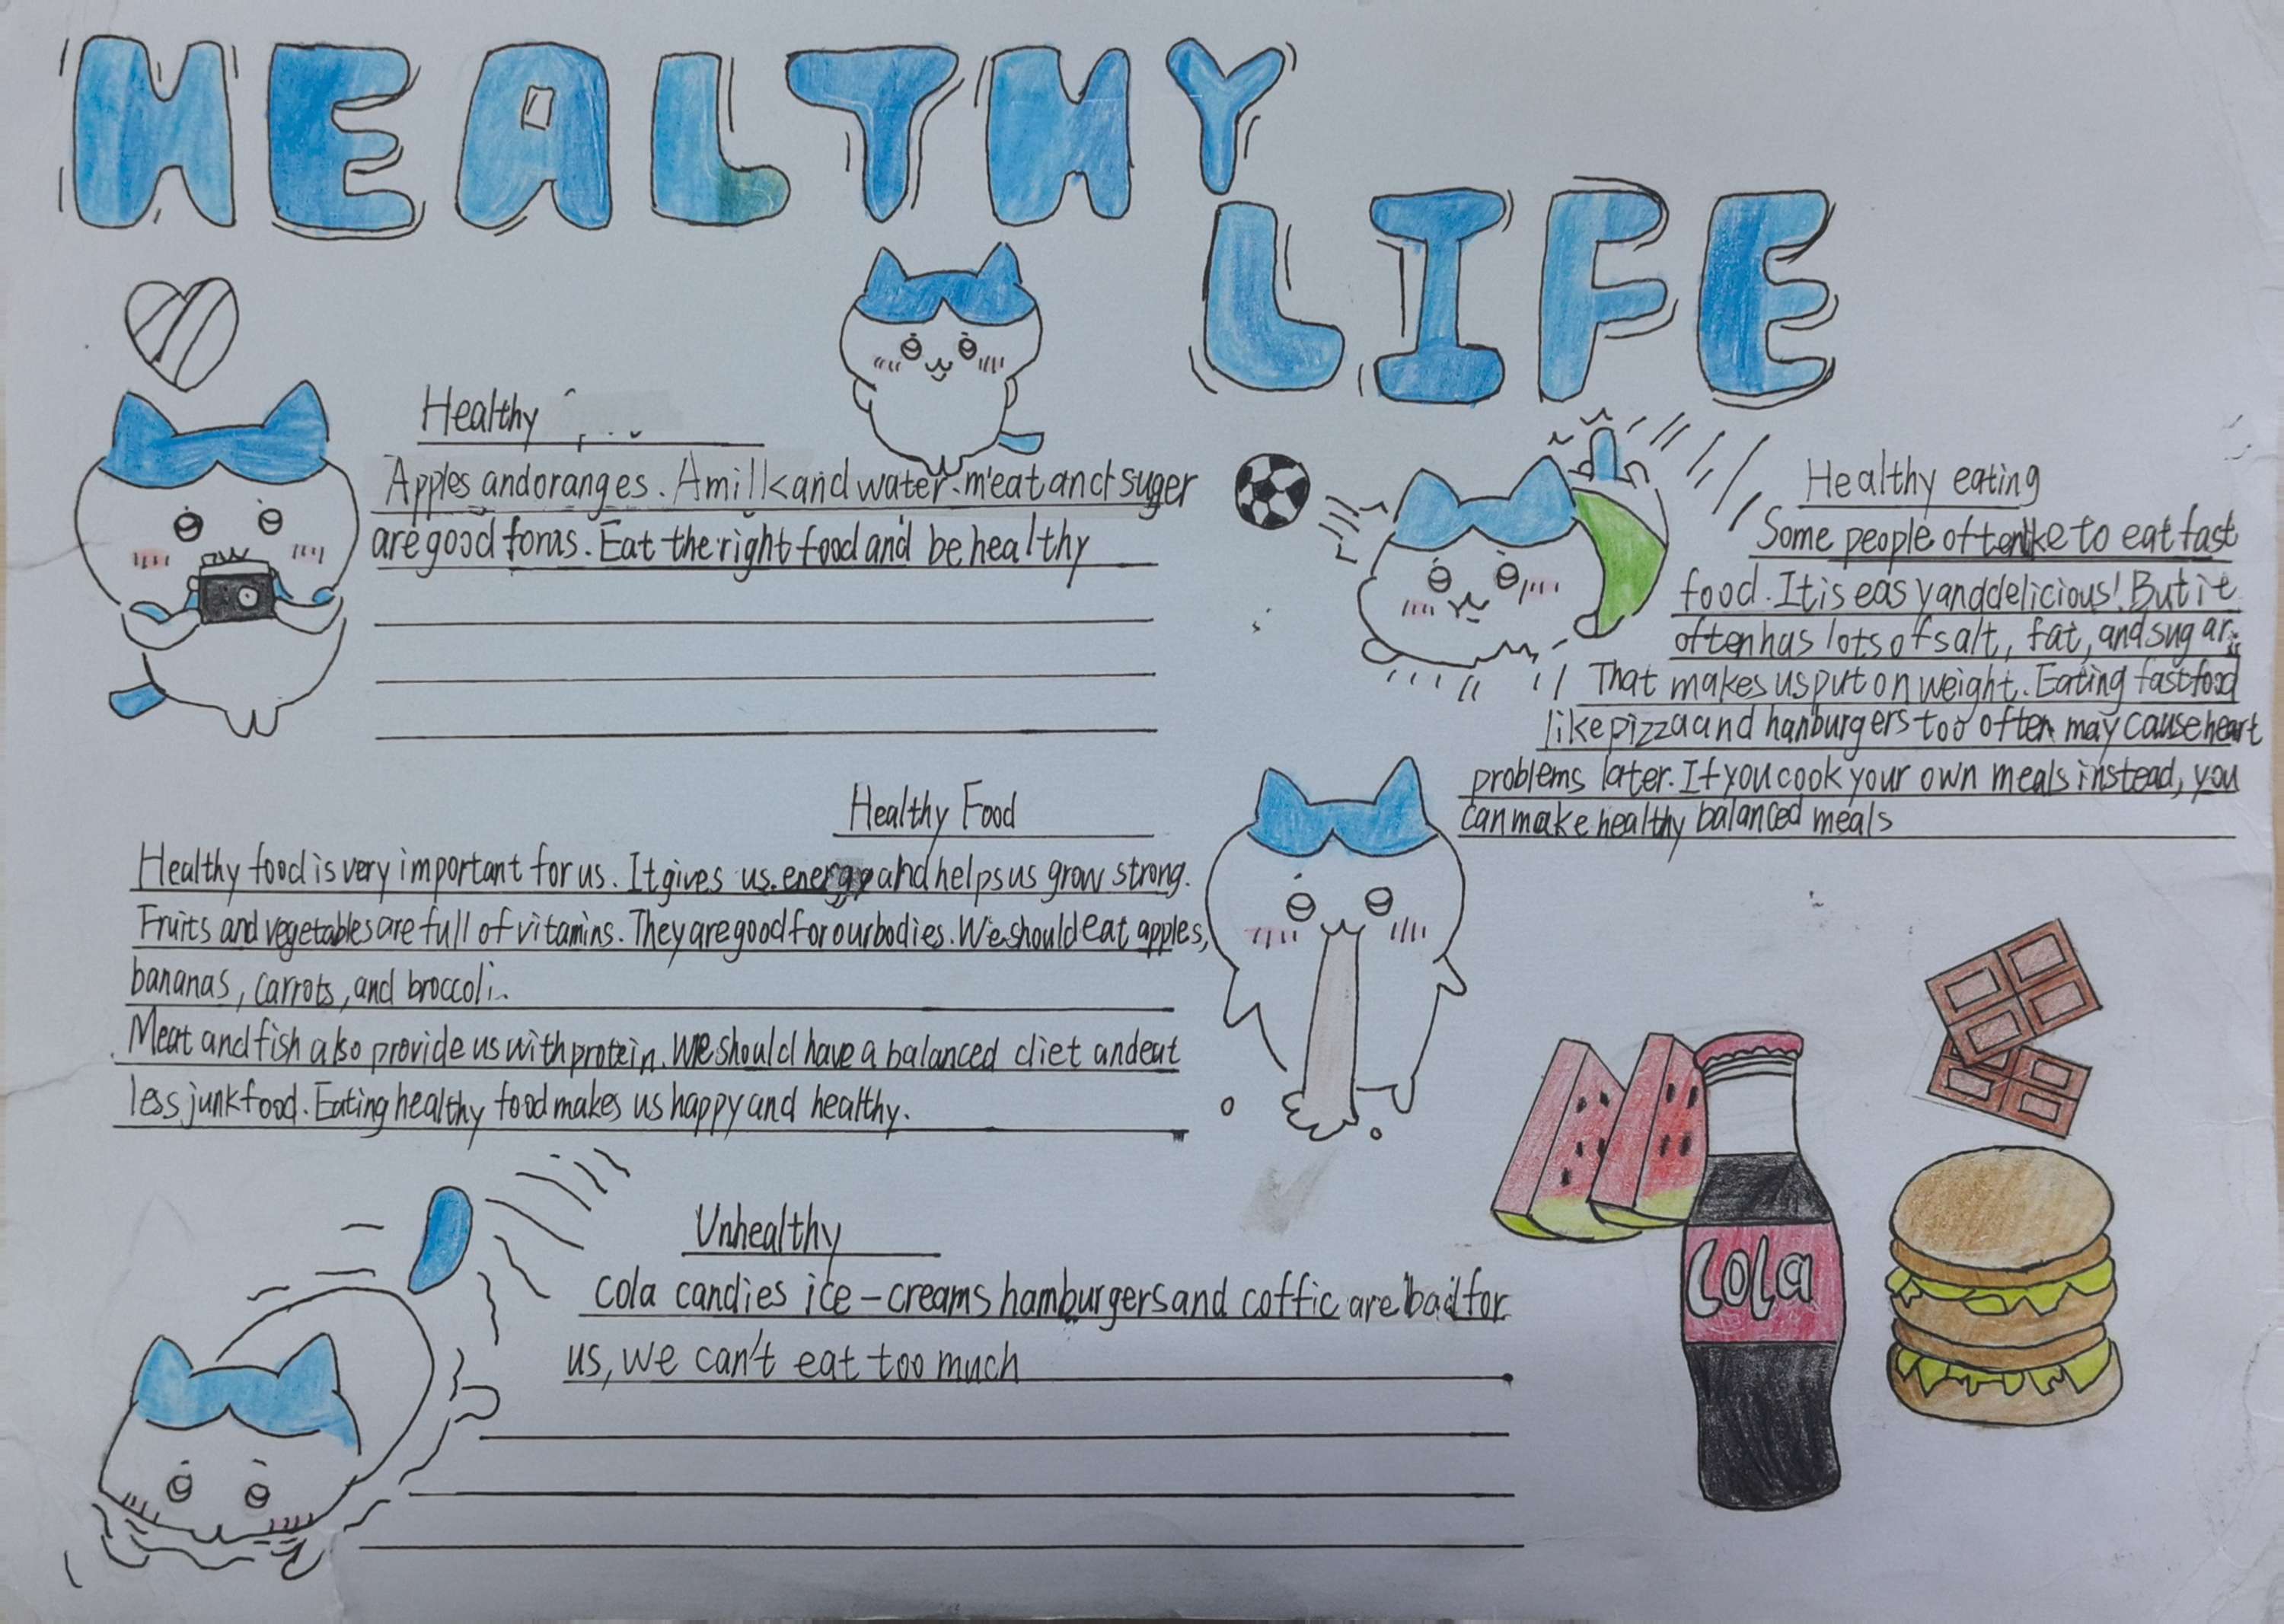 HEALTHY
LIFE
Healthy
Apples and oranges. A milk and water. meat and suger
are good for us. Eat the right food and be healthy
Healthy eating
Some people often like to eat fast
food. It is easy and delicious! But it
often has lots of salt, fat, and sugar.
That makes us put on weight. Eating fast food
like pizza and hanburgers too often may cause heart
problems later. If you cook your own meals instead, you
can make healthy balanced meals
Healthy Food
Healthy food is very important for us. It gives us energy and helps us grow strong.
Fruits and vegetables are full of vitamins. They are good for our bodies. We should eat apples,
bananas, carrots, and broccoli.
Meat and fish also provide us with protein. We should have a balanced diet and eat
less junk food. Eating healthy food makes us happy and healthy.
Unhealthy
cola candies ice-creams hamburgers and coffic are bad for
us, we can't eat too much
Cola